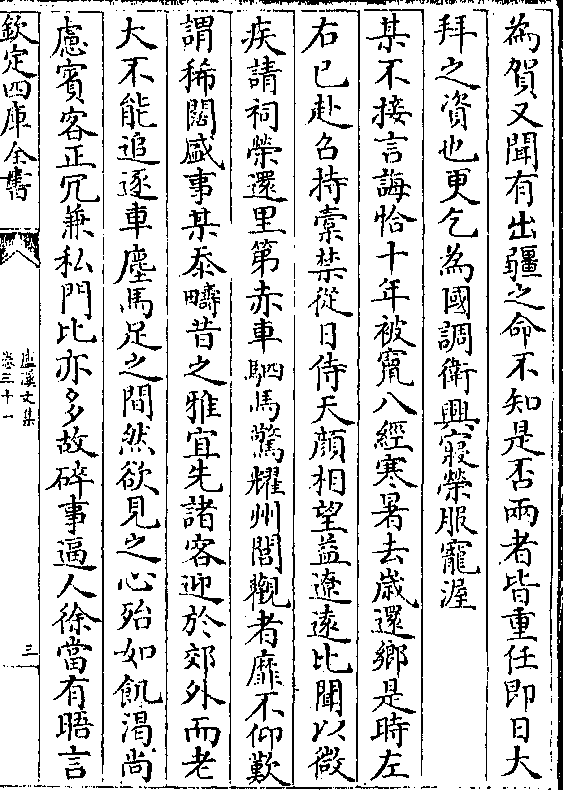 為賀又聞有出疆之命不知是否兩者皆重任即日大
拜之資也更乞為國調衛興寢榮服寵渥
某不接言誨恰十年被竄八經寒暑去歲還鄉是時左
右已赴召持橐禁從日侍天顔相望益遼遠比聞以微
疾請祠榮還里第赤車駟馬驚耀州閭觀者靡不仰歎
謂稀闊盛事某忝疇昔之雅宜先諸客迎於郊外而老
大不能追逐車塵馬足之間然欲見之心殆如飢渴尚
慮賓客正冗兼私門比亦多故碎事逼人徐當有晤言
欽定四庫全書
盧溪文集
卷三十一
三